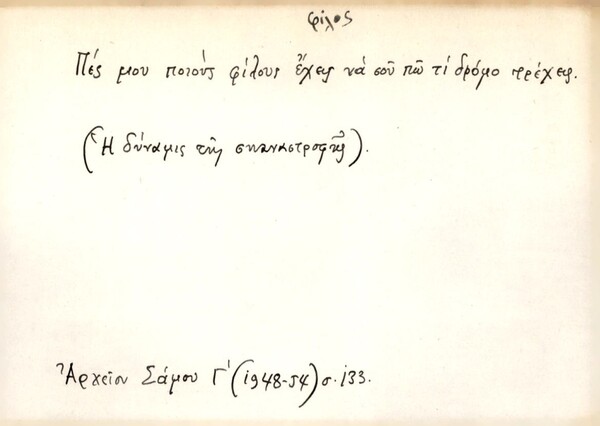 φίλος
Πές μου ποιούς φίλους ἔχεις νά σοῦ πῶ τί δρόμο τρέχεις.
(Ἡ δύναμις τῆς συναναστροφῆς).
Ἀρχεῖον Σάμου Γ' (1948-54) σ. 133.